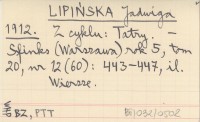 LIPIŃSKA Jadwiga
1912. Z cyklu: Tatry. —
Sfinks (Warszawa) rok 5, tom
20, nr 12 (60): 443-447, il.
Wiersze.
BZ, PTT